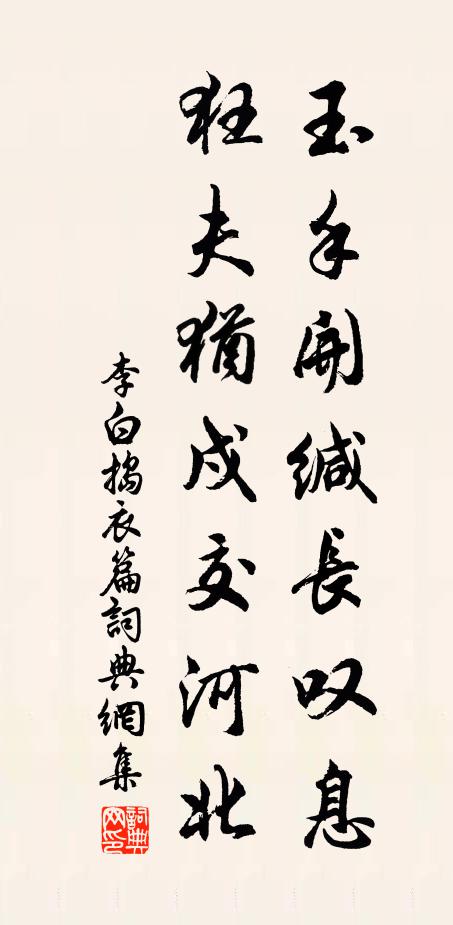 玉手開緘長叹息
狂夫猶戍交河北
李白搗衣篇詞典網集
詞典网印